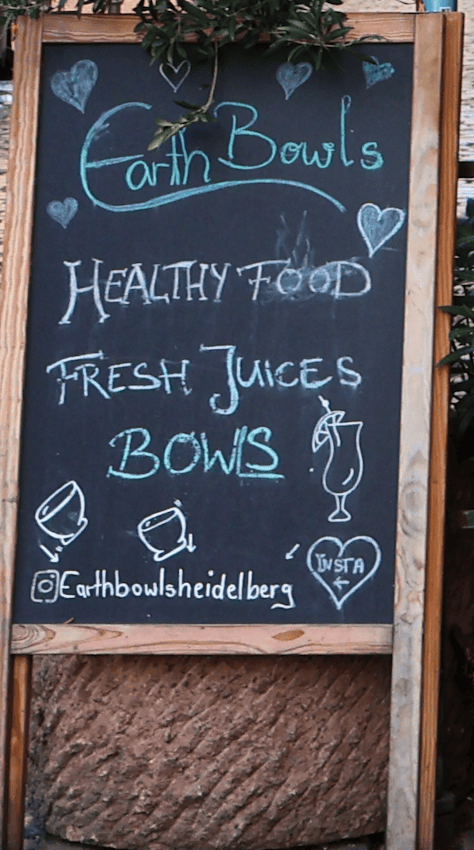 Earth Bowls
HEALTHY FOOD
FRESH JUICES
BOWLS
Earthbowlsheidelberg
INSTA